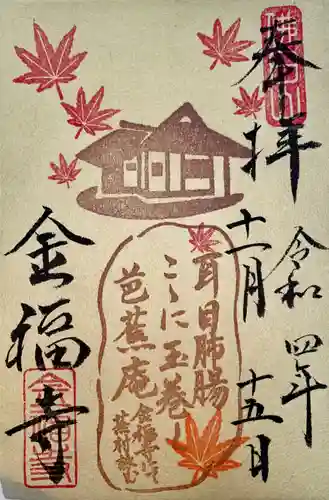 奉拝
令和四年
十一月十五日
耳目肺腸
こゝに玉巻
芭蕉庵
金福寺にて
蕪村詠む
金福寺